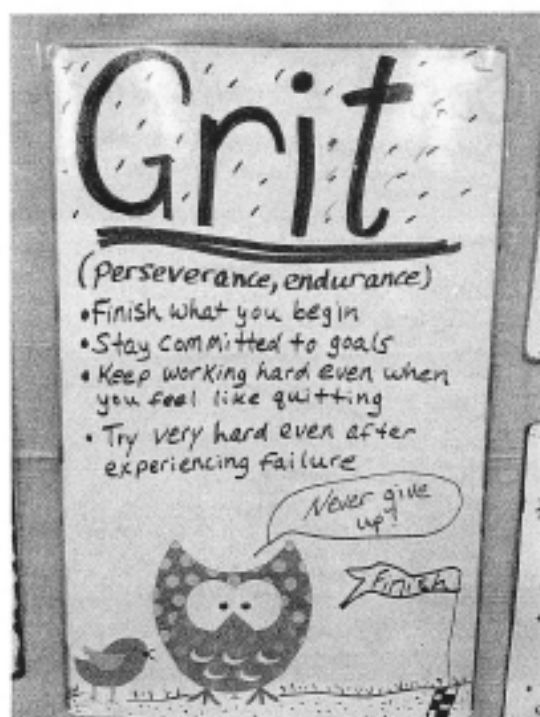 Grit
(perseverance, endurance)
• Finish what you begin
• Stay committed to goals
• Keep working hard even when
you feel like quitting
• Try very hard even after
experiencing failure
Never give
up!
Finish